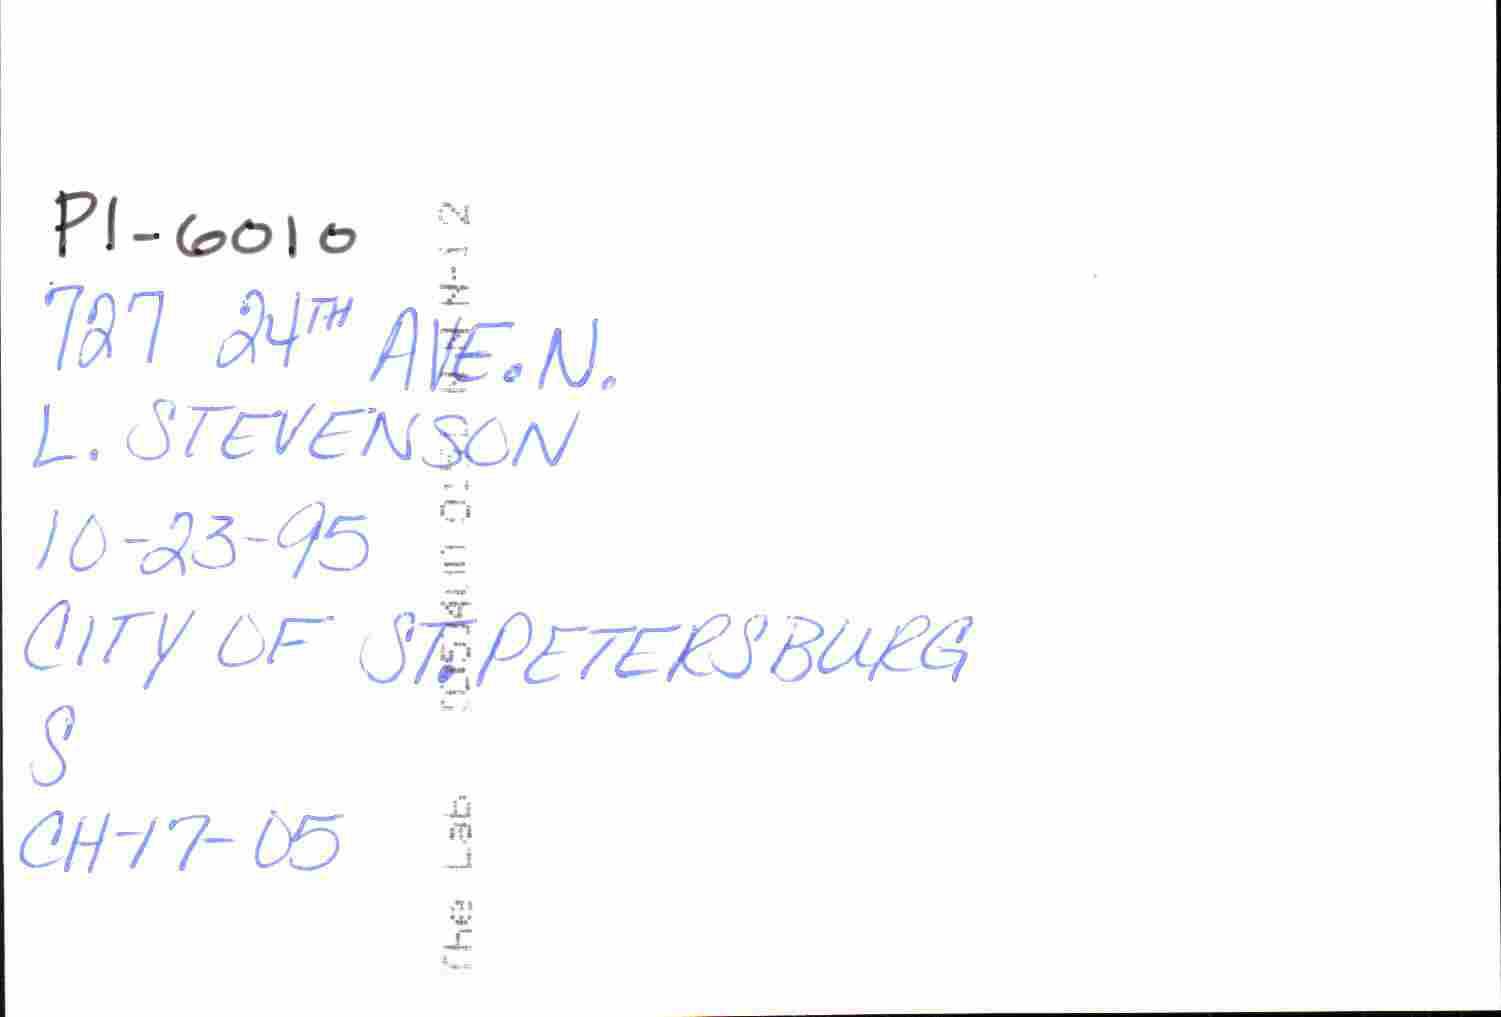 PI-6010
727 24TH AVE. N.
L. STEVENSON
10-23-95
CITY OF ST. PETERSBURG
S
CH-17-05
The Lab